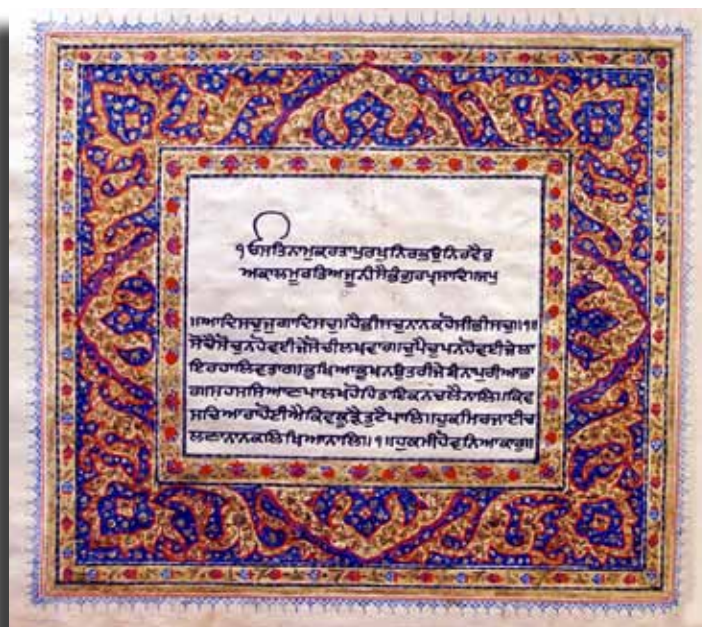 ੴਸਤਿਨਾਮੁਕਰਤਾਪੁਰਖੁਨਿਰਭਉਨਿਰਵੈਰੁ
ਅਕਾਲਮੂਰਤਿਅਜੂਨੀਸੈਭੰਗੁਰਪ੍ਰਸਾਦਿ॥ਜਪੁ
॥ਆਦਿਸਚੁਜੁਗਾਦਿਸਚੁ॥ਹੈਭੀਸਚੁਨਾਨਕਹੋਸੀਭੀਸਚੁ॥੧॥
ਸੋਚੈਸੋਚਿਨਹੋਵਈਜੇਸੋਚੀਲਖਵਾਰ॥ਚੁਪੈਚੁਪਨਹੋਵਈਜੇਲਾ
ਇਰਹਾਲਿਵਤਾਰ॥ਭੁਖਿਆਭੁਖਨਉਤਰੀਜੇਬੰਨਾਪੁਰੀਆਭਾ
ਰ॥ਸਹਸਸਿਆਣਪਾਲਖਹੋਹਿਤਇਕਨਚਲੈਨਾਲਿ॥ਕਿਵ
ਸਚਿਆਰਾਹੋਈਐਕਿਵਕੂੜੈਤੁਟੈਪਾਲਿ॥ਹੁਕਮਿਰਜਾਈਚ
ਲਣਾਨਾਨਕਲਿਖਿਆਨਾਲਿ॥੧॥ਹੁਕਮੀਹੋਵਨਿਆਕਾਰ॥